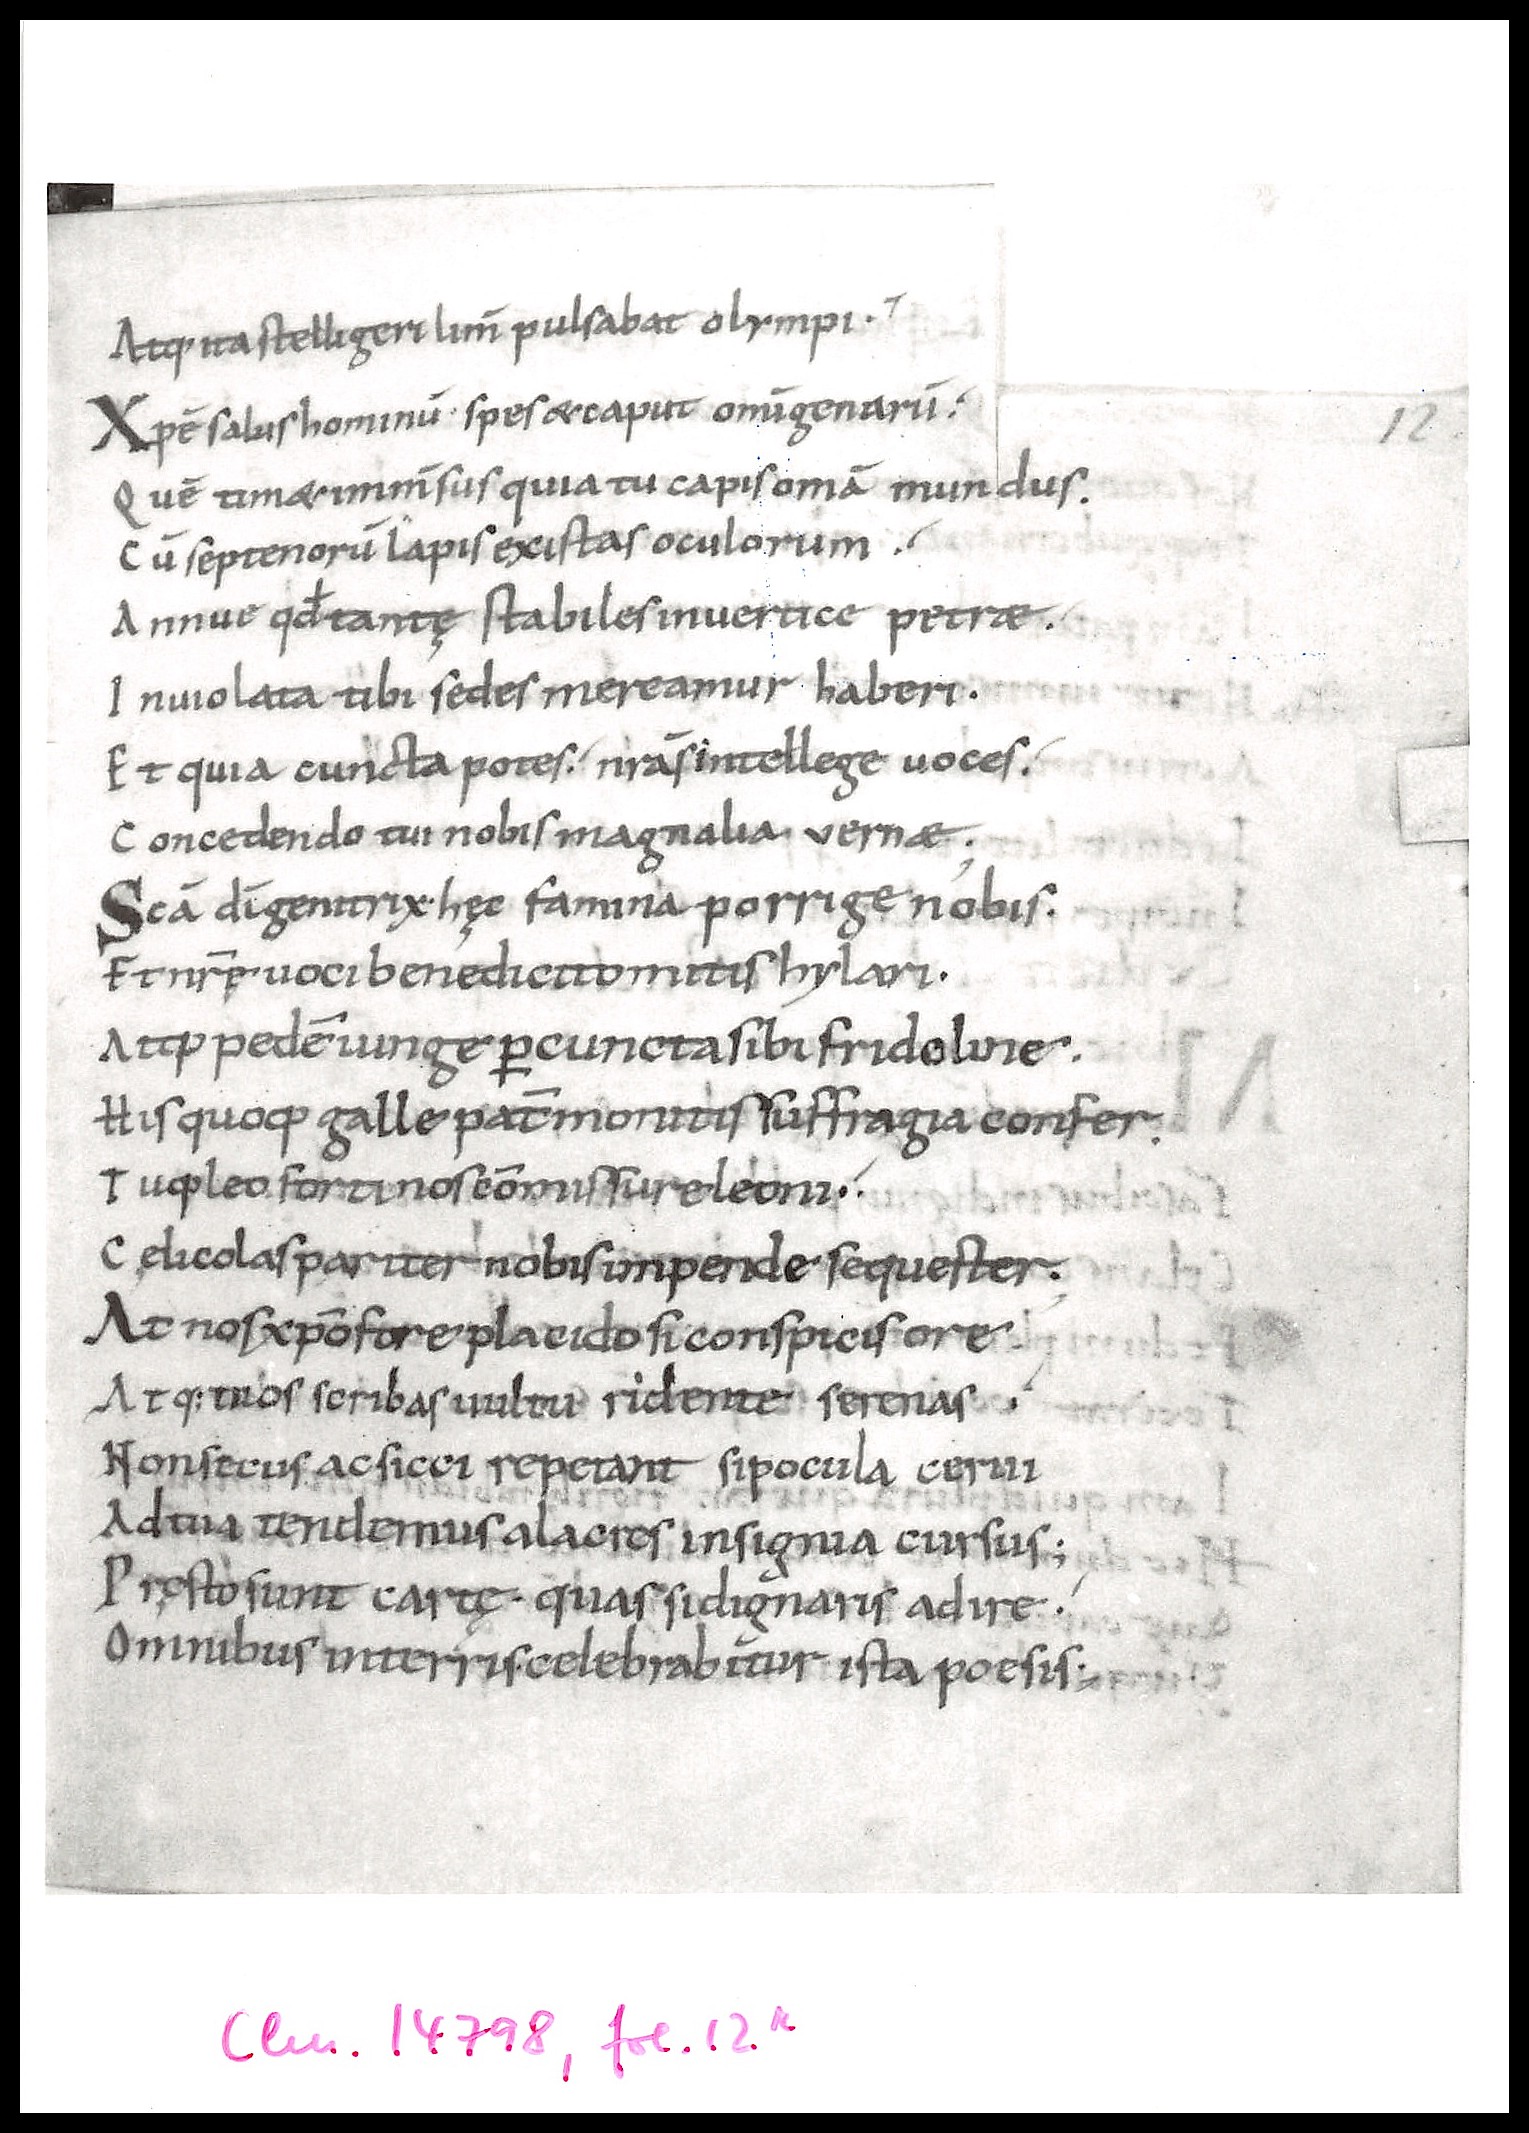 Atq· ita stelligeri lim̄ pulsabat olympi.
Xp̄e salus hominū· spes & caput om̄igenarū:
12
Quē tim& imm̄sus quia tu capis om̄ā mundus.
Cū septenorū lapis existas oculorum.
Annue qđ tantę stabiles in uertice petræ.
Inuiolata tibi sedes mereamur haberi.
Et quia cuncta potes: nrās intellege uoces:
Concedendo tui nobis magnalia vernæ;
Scā dī genitrix· hęc famina porrige nobis.
Et nr̄ę uoci benedicito mitis hylari.
Atq; pedē iunge ꝑ cuncta sibi fridoline.
His quoq; galle pat̄ monitis suffragia confer.
Tuq; leo forti nos cōmissure leoni.
Cęlicolas pariter nobis impende sequester;
At nos xp̄ofore placido si conspicis ore
Atq: tuos scribas uultu ridente serenas.
Non secus ac sicci repetant si pocula cerui
Ad tua tendemus alacres insignia cursus;
Pręsto sunt cartę· quas si dignaris adire.
Omnibus in terris celebrabitur ista poesis;
Clm. 14798, fol. 12 r